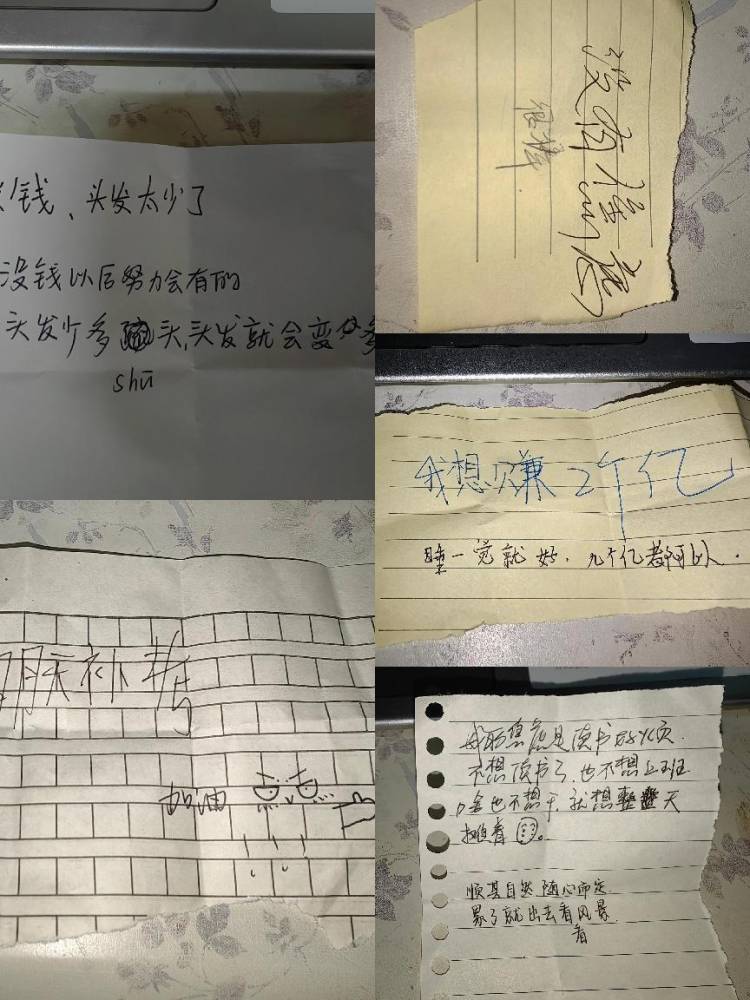 钱、头发太少了
没钱以后努力会有的
头发少多头,头发就会变多
shū
没有焦虑
很棒
我想赚2个亿
睡一觉就好,几个亿都可以.
明天补考
加油
我的焦虑是读书好烦
不想读书了,也不想上班
啥也不想干,就想整天
摊着
顺其自然 随心而定
累了就出去看风景
看